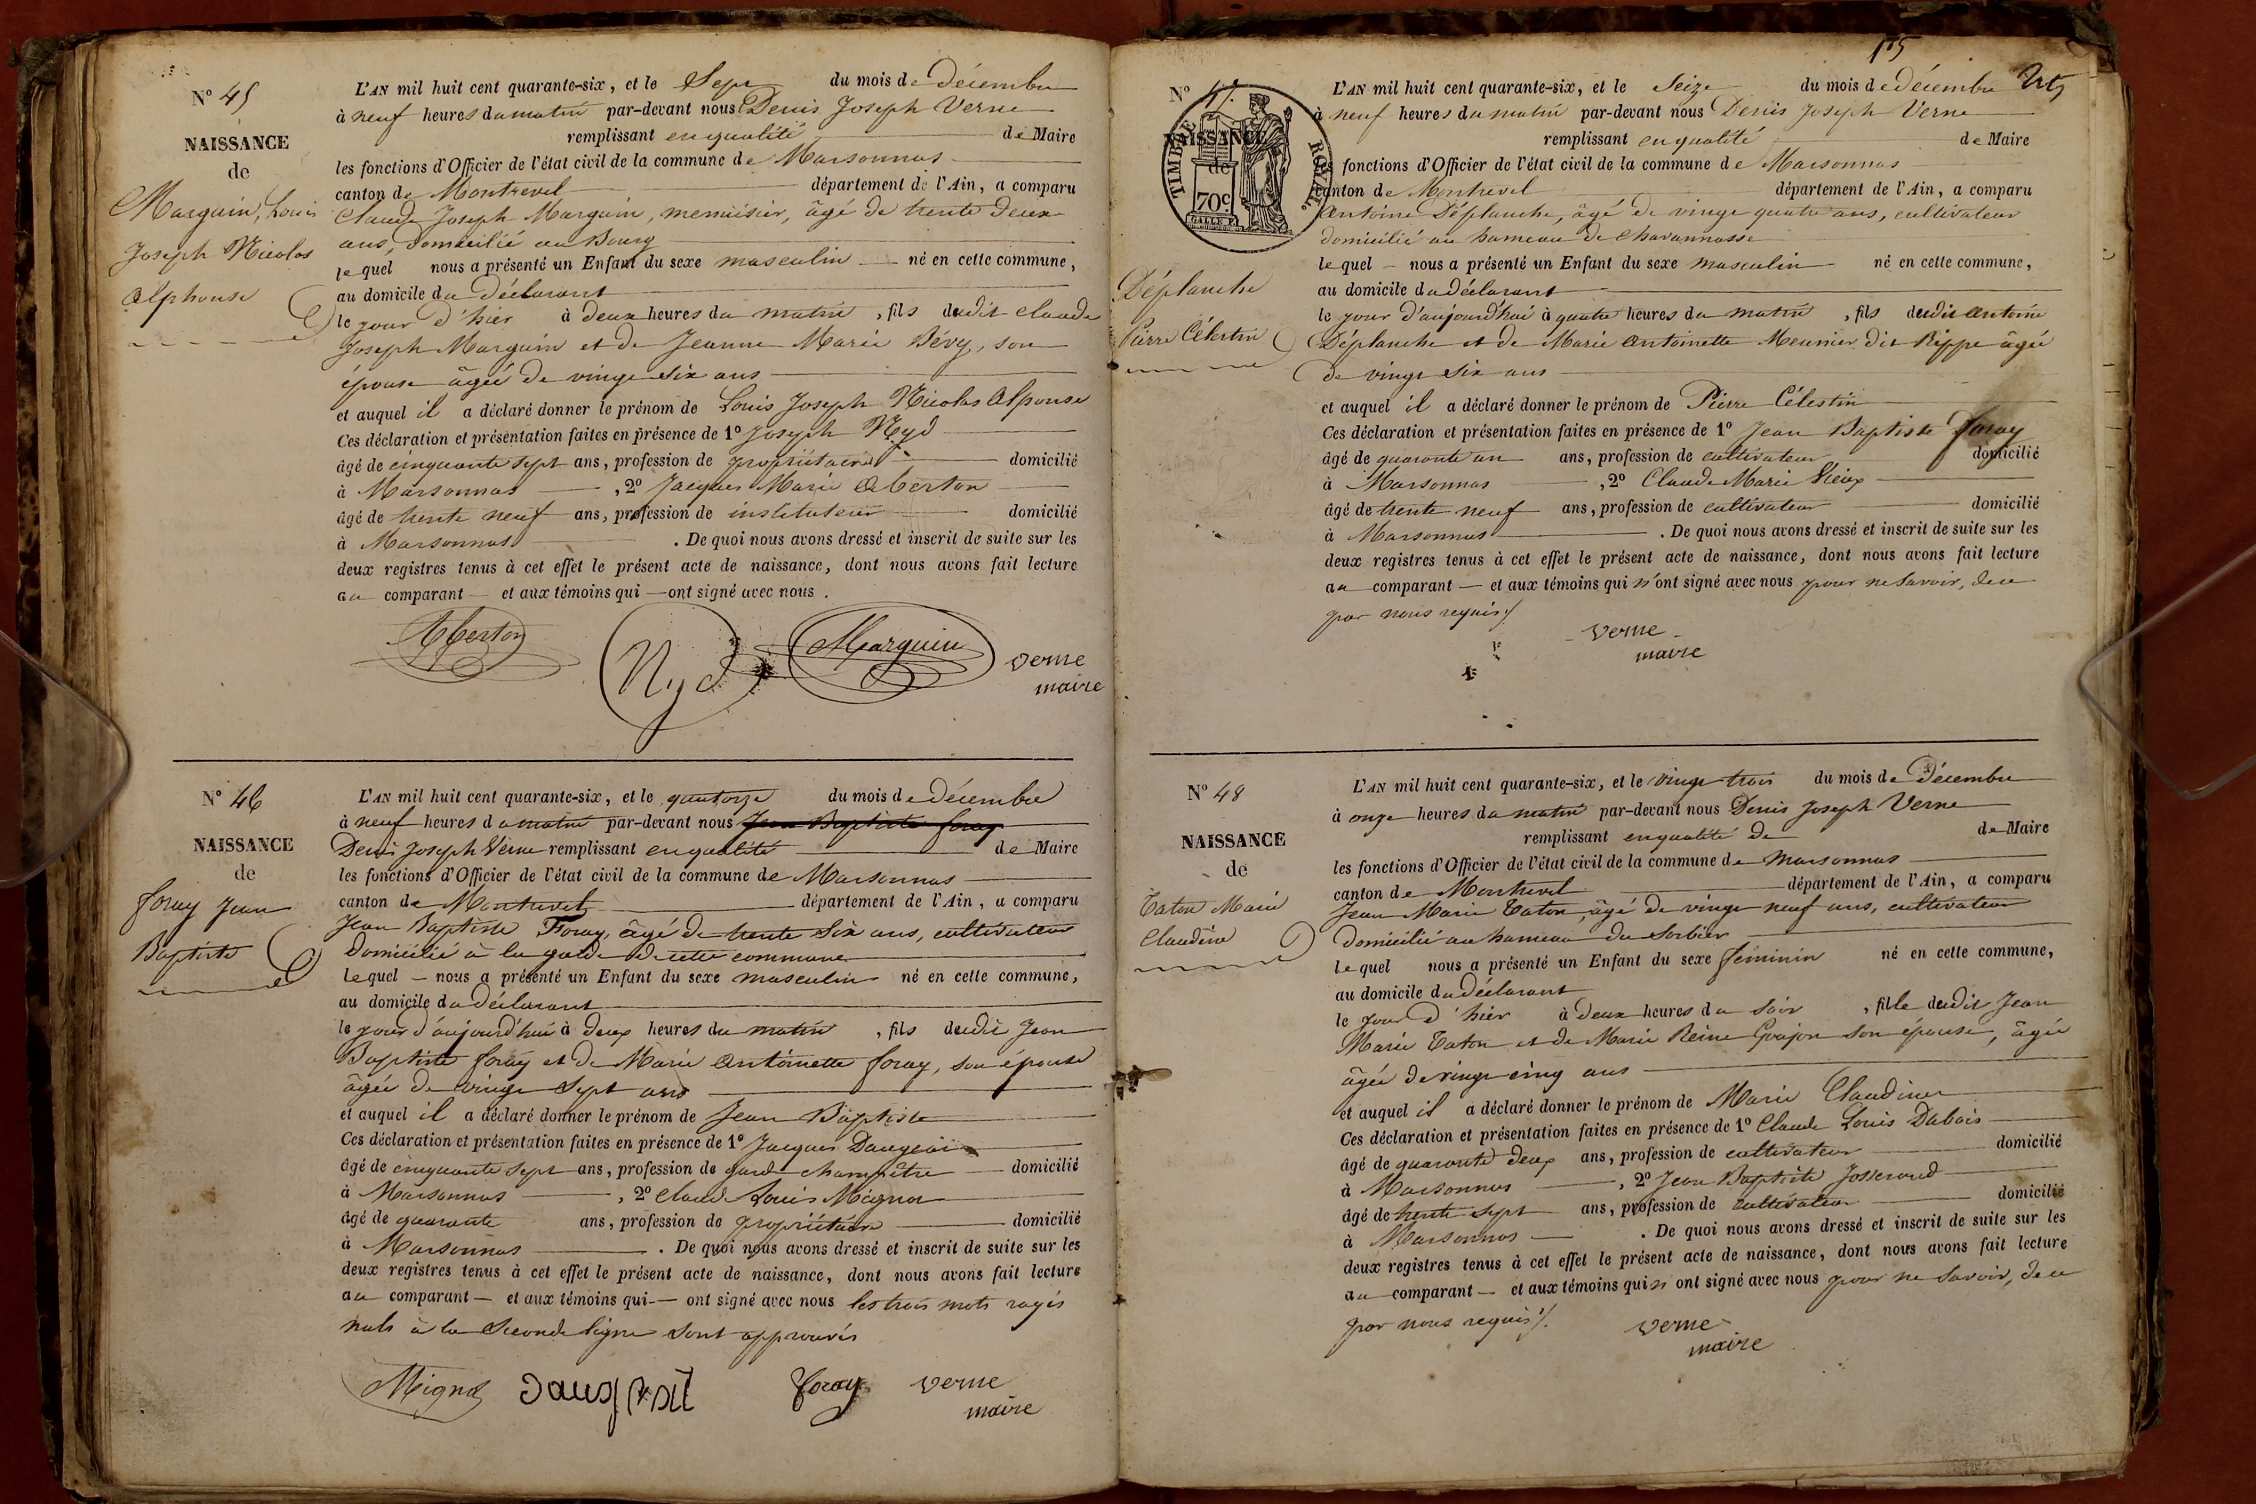 N° 45
NAISSANCE
de
Marguin, Louis
Joseph Nicolas
Alphonse
L'AN mil huit cent quarante-six, et le Sept du mois de décembre
à neuf heures du matin par-devant nous Denis Joseph Verne
remplissant en qualité de Maire
les fonctions d'Officier de l'état civil de la commune de Marsonnas
canton de Montrevel département de l'Ain, a comparu
Claude Joseph Marguin, menuisier, âgé de trente deux
ans, domicilié au Bourg
lequel nous a présenté un Enfant du sexe masculin né en cette commune,
au domicile du déclarant
le jour d'hier à deux heures du matin, fils dudit Claude
Joseph Marguin et de Jeanne Marie Bévy, son
épouse âgée de vingt six ans
et auquel il a déclaré donner le prénom de Louis Joseph Nicolas Alponse
Ces déclaration et présentation faites en présence de 1° Joseph Nyd
âgé de cinquante sept ans, profession de propriétaire domicilié
à Marsonnas, 2° Jacques Marie Aberton
âgé de trente neuf ans, profession de instituteur domicilié
à Marsonnas. De quoi nous avons dressé et inscrit de suite sur les
deux registres tenus à cet effet le présent acte de naissance, dont nous avons fait lecture
au comparant et aux témoins qui ont signé avec nous.
Aberton Nyd Marguin Verne
maire
N° 46
NAISSANCE
de
foray Jean
Baptiste
L'AN mil huit cent quarante-six, et le quatorze du mois de décembre
à neuf heures du matin par-devant nous Jean Baptiste foray
Denis Joseph Verne remplissant en qualité de Maire
les fonctions d'Officier de l'état civil de la commune de Marsonnas
canton de Montrevel département de l'Ain, a comparu
Jean Baptiste Foray, âgé de trente six ans, cultivateur
domicilié à la de cette commune
lequel nous a présenté un Enfant du sexe masculin né en cette commune,
au domicile du déclarant
le jour d'aujourd'hui à deux heures du matin, fils dudit Jean
Baptiste foray et de Marie Antoinette foray, son épouse
âgée de vingt sept ans
et auquel il a déclaré donner le prénom de Jean Baptiste
Ces déclaration et présentation faites en présence de 1° Jacques
âgé de cinquante sept ans, profession de garde champêtre domicilié
à Marsonnas, 2° Claude Louis Mignot
âgé de quarante ans, profession de propriétaire domicilié
à Marsonnas. De quoi nous avons dressé et inscrit de suite sur les
deux registres tenus à cet effet le présent acte de naissance, dont nous avons fait lecture
au comparant et aux témoins qui ont signé avec nous les trois mots rayés
nuls à la seconde ligne sont approuvés
Mignot foray Verne
maire
115
N° 47.
NAISSANCE
de
TIMBRE ROYAL.
70c
Déplanche
Pierre Célestin
L'AN mil huit cent quarante-six, et le Seize du mois de décembre
à neuf heures du matin par-devant nous Denis Joseph Verne
remplissant en qualité de Maire
les fonctions d'Officier de l'état civil de la commune de Marsonnas
canton de Montrevel département de l'Ain, a comparu
Antoine Déplanche, âgé de vingt quatre ans, cultivateur
domicilié au hameau de Chavannosse
lequel nous a présenté un Enfant du sexe masculin né en cette commune,
au domicile du déclarant
le jour d'aujourd'hui à quatre heures du matin, fils dudit Antoine
Déplanche et de Marie Antoinette Meunier dit Rippe âgée
de vingt six ans
et auquel il a déclaré donner le prénom de Pierre Célestin
Ces déclaration et présentation faites en présence de 1° Jean Baptiste foray
âgé de quarante un ans, profession de cultivateur domicilié
à Marsonnas, 2° Claude Marie Vieux
âgé de trente neuf ans, profession de cultivateur domicilié
à Marsonnas. De quoi nous avons dressé et inscrit de suite sur les
deux registres tenus à cet effet le présent acte de naissance, dont nous avons fait lecture
au comparant et aux témoins qui n'ont signé avec nous pour ne savoir, de ce
par nous requis
Verne
maire
N° 48
NAISSANCE
de
Caton Marie
Claudine
L'AN mil huit cent quarante-six, et le vingt trois du mois de décembre
à onze heures du matin par-devant nous Denis Joseph Verne
remplissant en qualité de de Maire
les fonctions d'Officier de l'état civil de la commune de Marsonnas
canton de Montrevel département de l'Ain, a comparu
Jean Marie Caton, âgé de vingt neuf ans, cultivateur
domicilié au hameau du Sorbier
lequel nous a présenté un Enfant du sexe féminin né en cette commune,
au domicile du déclarant
le jour d'hier à deux heures du soir, fille dudit Jean
Marie Caton et de Marie Reine Goujon son épouse, âgée
âgée de vingt cinq ans
et auquel il a déclaré donner le prénom de Marie Claudine
Ces déclaration et présentation faites en présence de 1° Claude Louis Dubois
âgé de quarante deux ans, profession de cultivateur domicilié
à Marsonnas, 2° Jean Baptiste Josserand
âgé de trente sept ans, profession de cultivateur domicilié
à Marsonnas. De quoi nous avons dressé et inscrit de suite sur les
deux registres tenus à cet effet le présent acte de naissance, dont nous avons fait lecture
au comparant et aux témoins qui n'ont signé avec nous pour ne savoir, de ce
par nous requis
Verne
maire